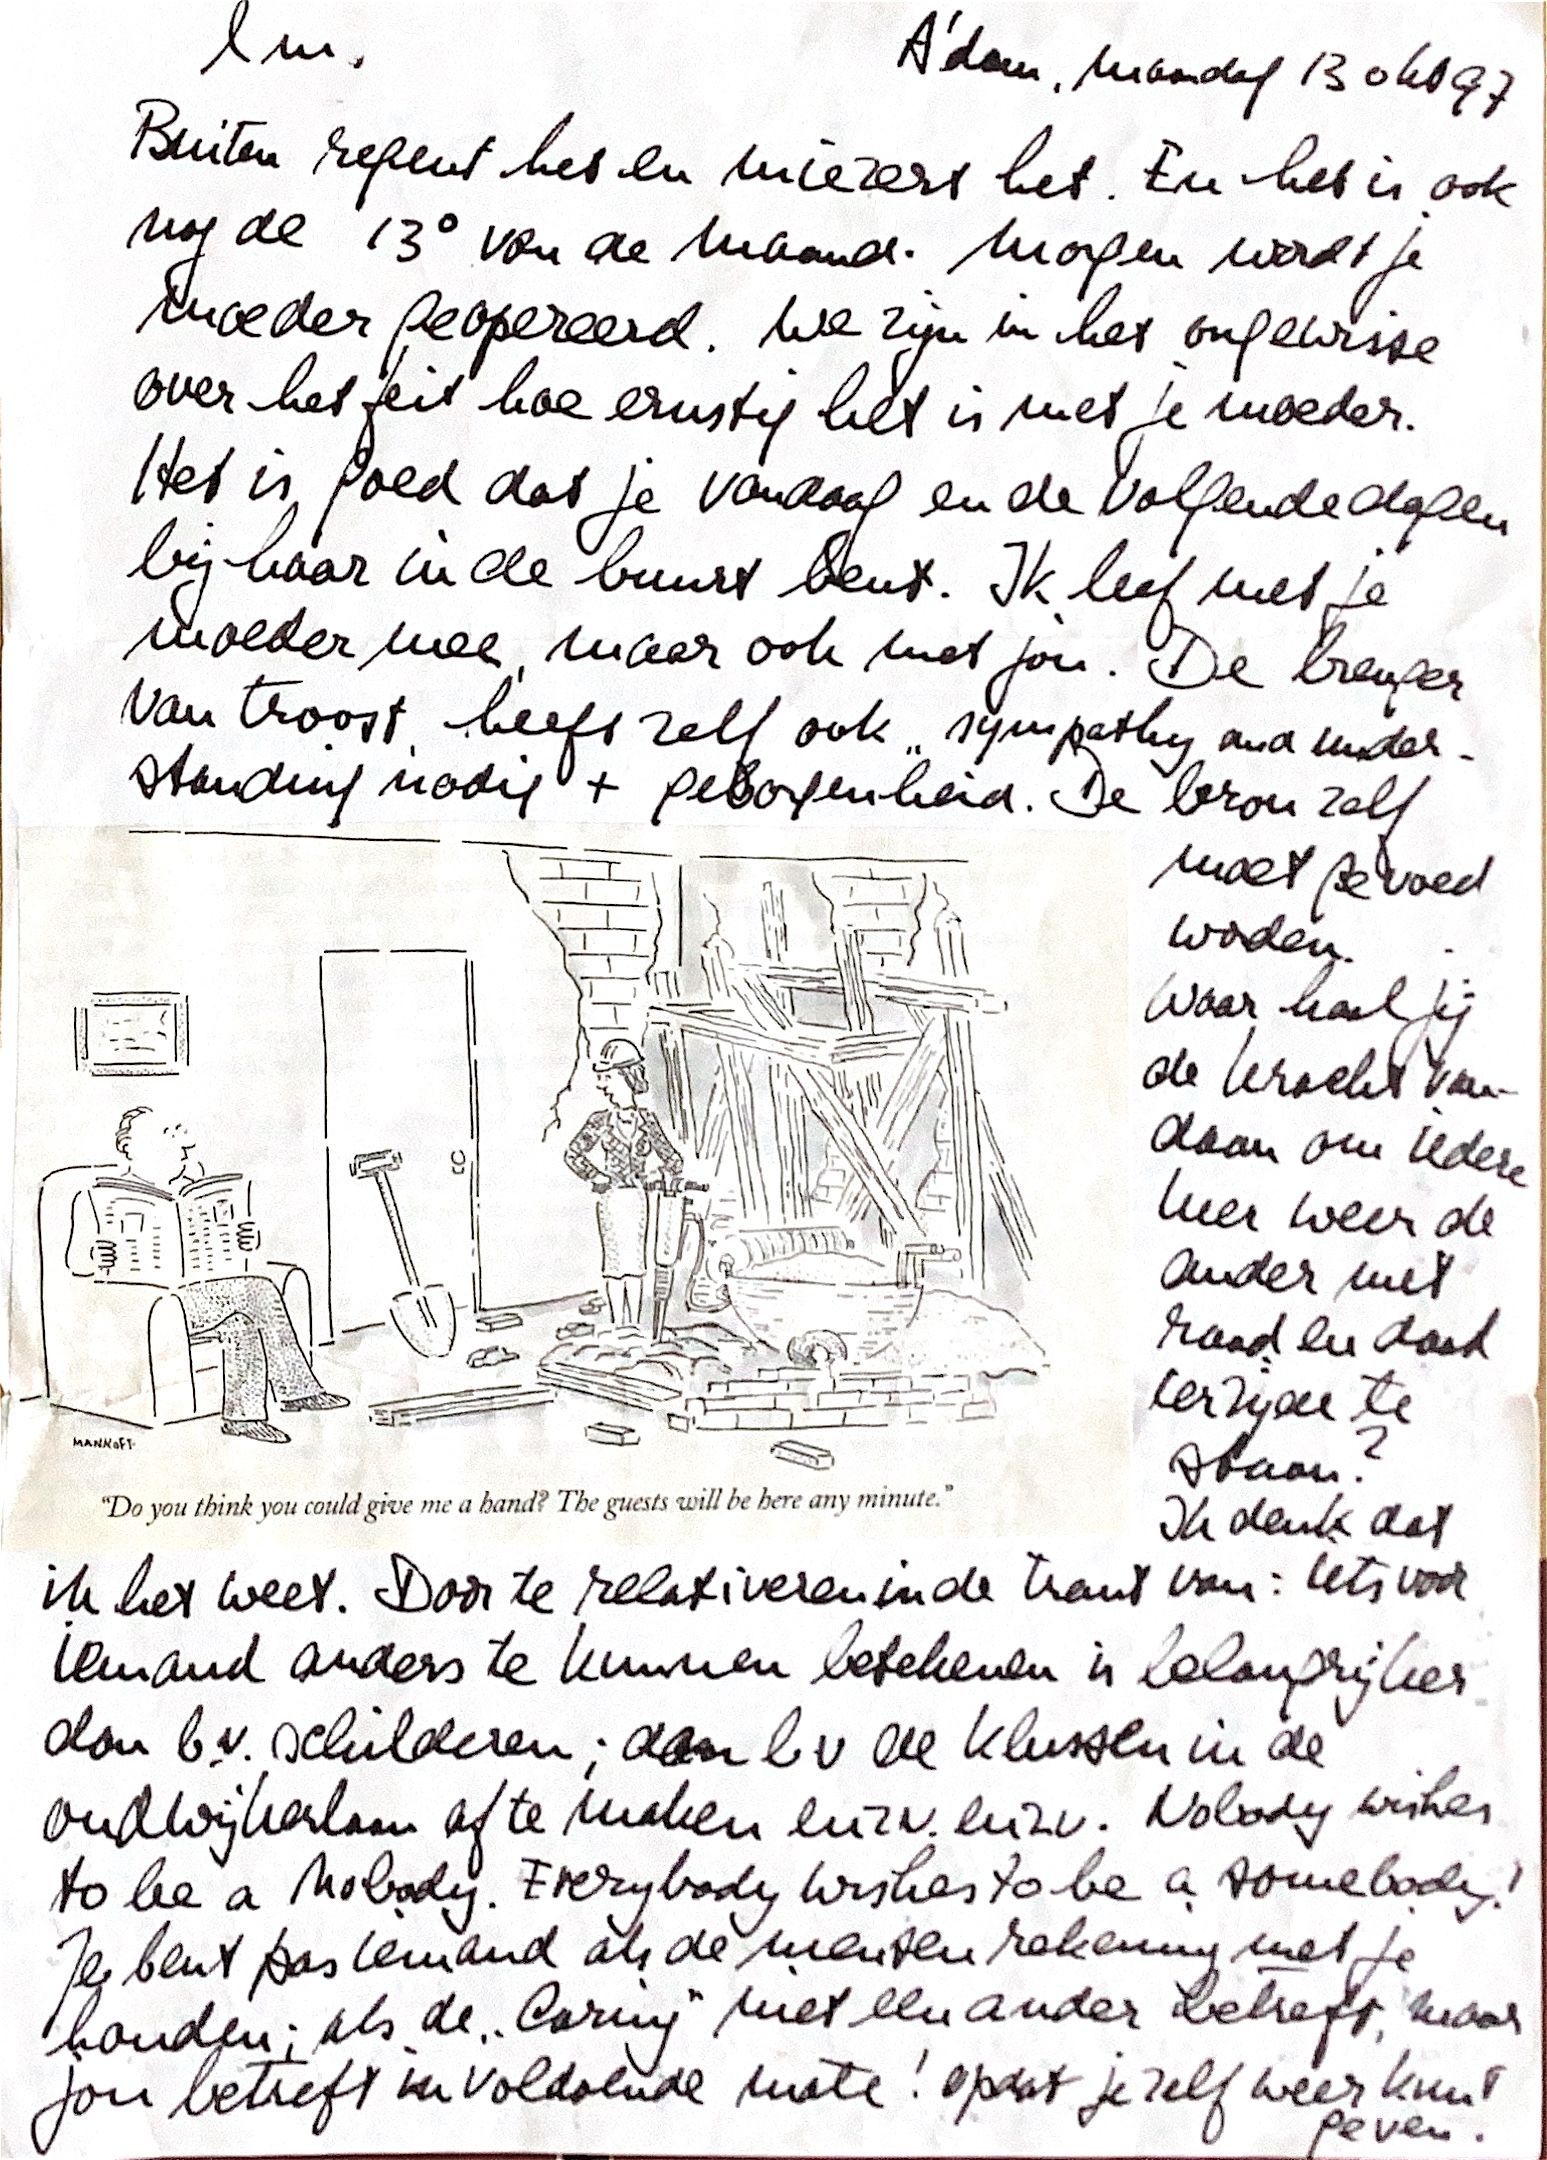 lm.
A'dam, maandag 13 okt 97
Buiten regent het en miezert het. En het is ook
nog de 13° van de maand. Morgen wordt je
moeder geopereerd. We zijn in het ongewisse
over het feit hoe ernstig het is met je moeder.
Het is goed dat je vandaag en de volgende dagen
bij haar in de buurt bent. Ik leef met je
moeder mee, maar ook met jou. De brenger
van troost, heeft zelf ook „sympathy and under-
standing nodig + geborgenheid. De bron zelf
moet gevoed
worden.
Waar haal jij
de kracht van-
daan om iedere
keer weer de
ander met
raad en daad
terzijde te
staan?
Ik denk dat
MANKOFF
"Do you think you could give me a hand? The guests will be here any minute."
ik het weet. Door te relativeren in de trant van: iets voor
iemand anders te kunnen betekenen is belangrijker
dan b.v. schilderen; dan bv de klussen in de
oudwijkerlaan af te maken enzv. enzv. Nobody wishes
to be a Nobody. Everybody wishes to be a somebody!
Je bent pas iemand als de mensen rekening met je
houden; als de „Caring" niet een ander betreft, maar
jou betreft in voldoende mate! opdat je zelf weer kunt
geven.